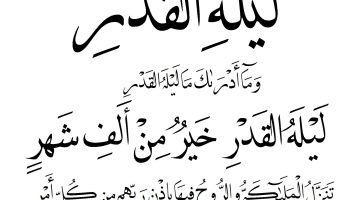 لَيْلَةِ الْقَدْرِ
وَمَا أَدْرَىٰكَ مَا لَيْلَةُ الْقَدْرِ
لَيْلَةُ الْقَدْرِ خَيْرٌ مِنْ أَلْفِ شَهْرٍ
تَنَزَّلُ الْمَلَائِكَةُ وَالرُّوحُ فِيهَا بِإِذْنِ رَبِّهِم مِن كُلِّ أَمْرٍ